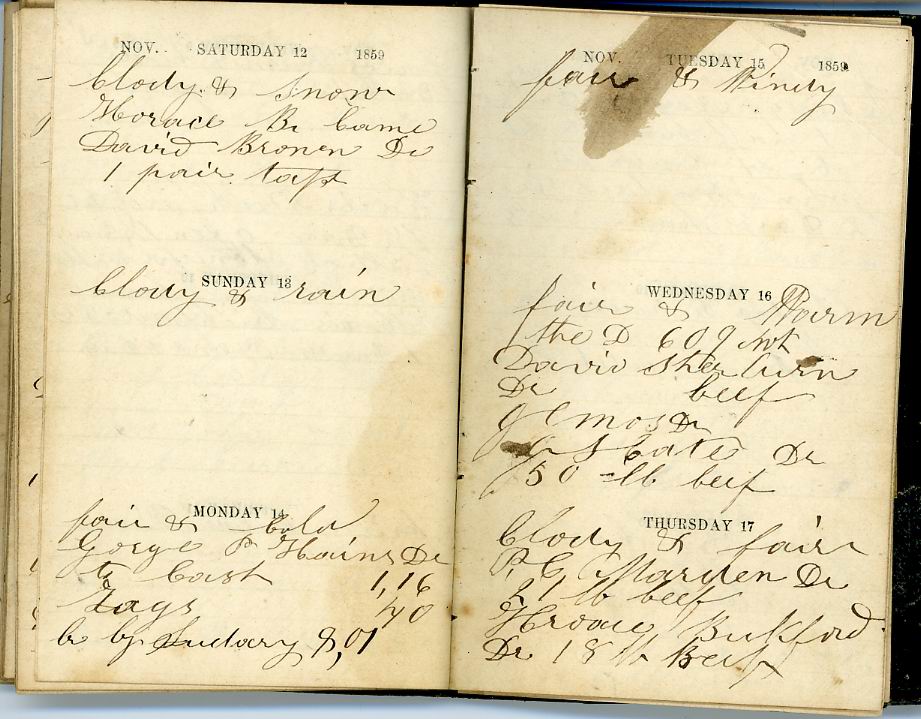 NOV. SATURDAY 12 1859
Clody & Snow
Horace B. Came
David Bronen Dr
1 pair taps
SUNDAY 13
Clody & rain
MONDAY 14
fair & Cold
Gorge P Hains Dr
to Cash 1,16
Rags 40
by Sudary 9,01
NOV. TUESDAY 15 1859
fair & Windy
WEDNESDAY 16
fair & Warm
the D 609 wt
David Sherburn
Dr beef
Dr
Dr
50 lb beef
THURSDAY 17
Clody & fair
P. G Marden Dr
21 lb beef
Horace Bickford
Dr 18 lb Beef